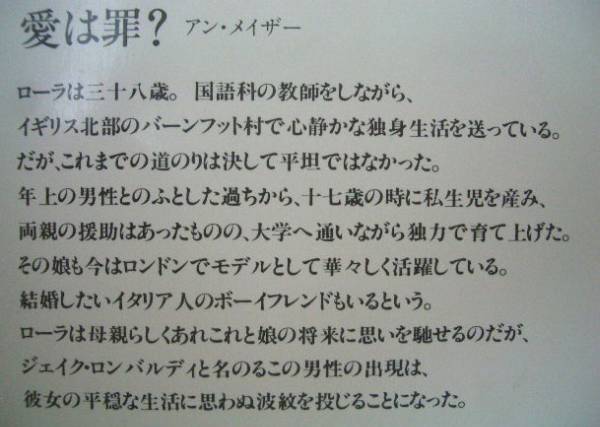 愛は罪? アン・メイザー
ローラは三十八歳。国語科の教師をしながら、
イギリス北部のバーンフット村で心静かな独身生活を送っている。
だが、これまでの道のりは決して平坦ではなかった。
年上の男性とのふとした過ちから、十七歳の時に私生児を産み、
両親の援助はあったものの、大学へ通いながら独力で育て上げた。
その娘も今はロンドンでモデルとして華々しく活躍している。
結婚したいイタリア人のボーイフレンドもいるという。
ローラは母親らしくあれこれと娘の将来に思いを馳せるのだが、
ジェイク・ロンバルディと名のるこの男性の出現は、
彼女の平穏な生活に思わぬ波紋を投じることになった。